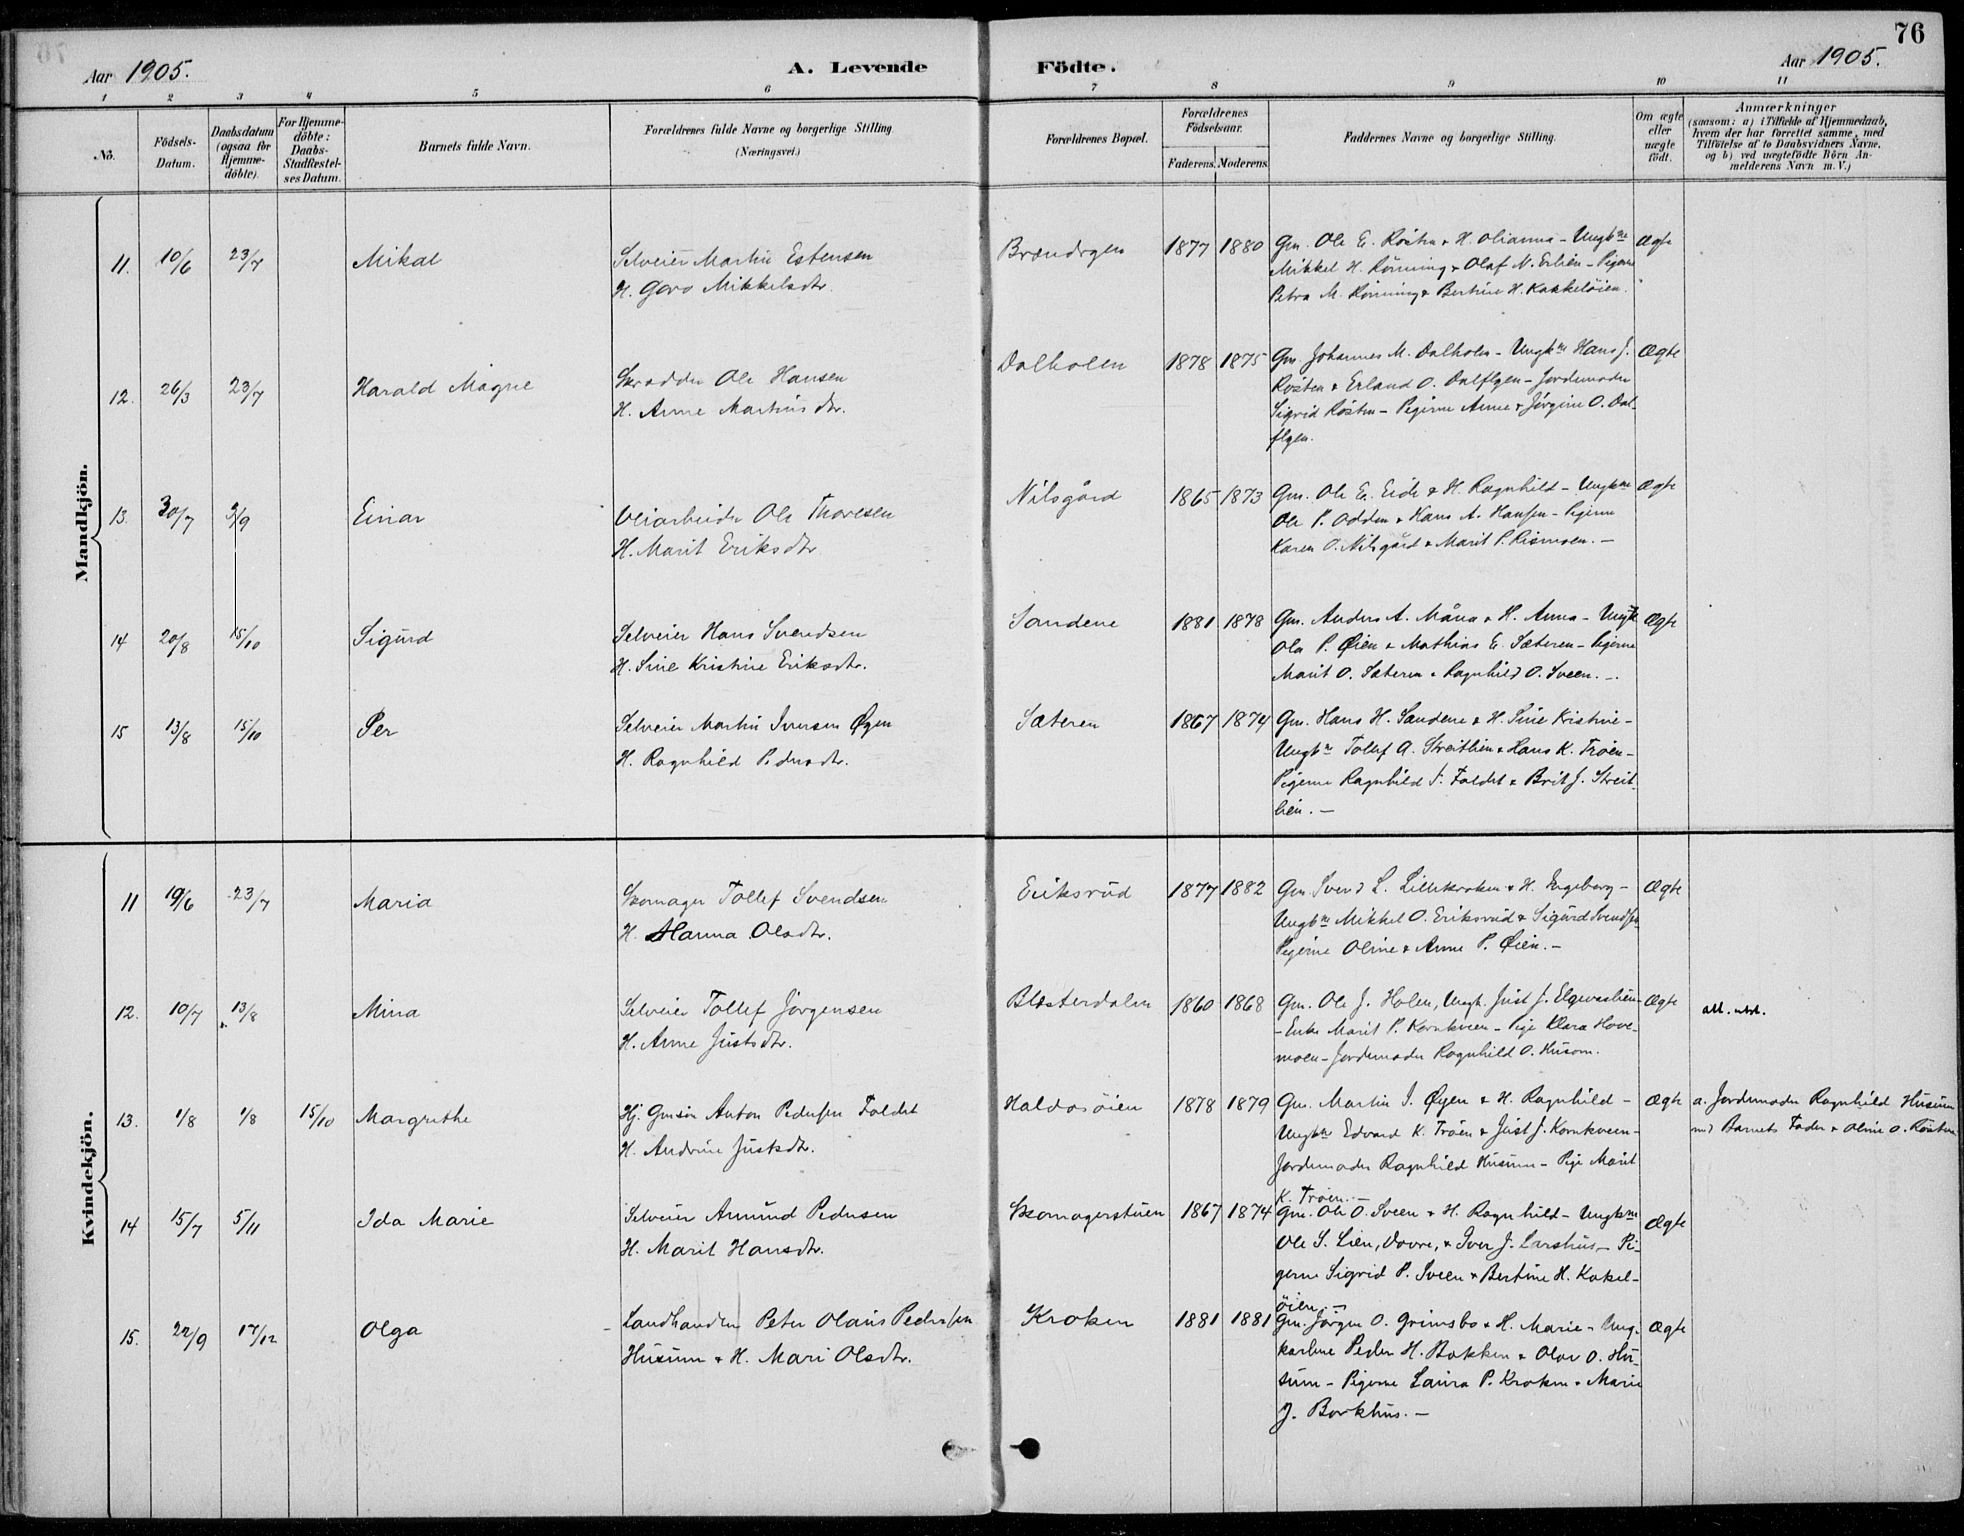 76
Aar 1905.
A. Levende Födte.
Aar 1905.
1 2 3 4 5 6 7 8 9 10 11
No.
Födsels-Datum.
Daabsdatum (ogsaa for Hjemme-döbte).
For Hjemme-döbte: Daabs-Stadfæstel-ses Datum.
Barnets fulde Navn.
Forældrenes fulde Navne og borgerlige Stilling
(Næringsvei.)
Forældrenes Bopæl.
Forældrenes Födselsaar.
Faderens. Moderens.
Faddernes Navne og borgerlige Stilling.
Om ægte eller uægte födt.
Anmærkninger
(saasom: a) i Tilfælde af Hjemmedaab,
hvem der har forrettet samme, med
Tilföielse af to Daabsvidners Navne,
og b) ved uægtefödte Börn An-
melderens Navn m.V.)
Mandkjön.
11. 10/6 23/7 Mikal Selveier Martin Estensen Brændrgen 1877 1880 Gm. Ole E. Røsten & H. Olianna - Ungkne Ægte
H. Goro Mikkelsdtr. Mikkel H. Rønning & Olaf N. Erlien - Pigerne
Petra M. Rønning & Bertine H. Kakkeløien.
12. 26/3 23/7 Harald Magne Skrædder Ole Hansen Dalholen 1878 1875 Gm. Johannes M. Dalholen - Ungkne Hans J. Ægte
H. Anne Martinsdtr. Røsten & Erland O. Dalflgen - Jordemoder
Sigrid Røsten - Pigerne Anne & Jørgine O. Dal-
flgen.
13. 30/7 3/9 Einar Veiarbeider Ole Thoresen Nilsgård 1865 1873 Gm. Ole E. Eide & H. Ragnhild - Ungkne Ægte
H. Marit Eriksdtr. Ole P. Odden & Hans A. Hansen - Pigerne
Karen O. Nilsgård & Marit P. Rismoen. -
14 20/8 15/10 Sigurd Selveier Hans Svendsen Sandene 1881 1878 Gm. Anders A. Måna & H. Anna - Ungk Ægte
H. Sine Kristine Eriksdtr. Ola P. Øien & Mathias E. Sæteren - Pigerne
Marit O. Sæteren & Ragnhild O. Sveen. -
15 13/8 15/10 Per Selveier Martin Iversen Øyen Sæteren 1867 1874 Gm. Hans H. Sandene & H. Sine Kristine -
H. Ragnhild Pedersdtr. Ungkne Tollef A. Streitlien & Hans K. Trøen -
Pigerne Ragnhild I. Faldet & Brit J. Streit-
lien. -
Kvindekjön.
11 19/6 23/7 Maria Skomager Tollef Svendsen Eriksrud 1877 1882 Gm Svend L. Lillekroken & H. Ingeborg - Ægte
H. Hanna Olsdtr. Ungkne Mikkel O. Eriksrud & Sigurd Svendsen
Pigerne Oline & Anne P. Øien. -
12. 10/7 13/8 Mina Selveier Tollef Jörgensen Blæsterdalen 1860 1868 Gm. Ole J. Holen, Ungk. Just J. Elgvaslien - Ægte att. utst.
H. Anne Justsdtr. - Enke Marit P. Kornkveen - Pige Klara Hove-
moen - Jordemoder Ragnhild O. Husom.
13. 1/8 1/8 15/10 Margrethe Hj. Gmsön Anton Pedersen Faldet Haldosøien 1878 1879 Gm. Martin I. Øyen & H. Ragnhild - Ægte a. Jordemoder Ragnhild Husum
H. Andrine Justsdtr. Ungkne Edvard K. Trøen & Just J. Kornkveen - med Barnets Fader & Oline O. Røsten
Jordemoder Ragnhild Husum - Pige Marit
K. Trøen. -
14 15/7 5/11 Ida Marie Selveier Amund Pedersen Skomagerstuen 1867 1874 Gm. Ole O. Sveen & H. Ragnhild - Ungkne Ægte
H. Marit Hansdtr. Ole S. Lien, Dovre, & Iver J. Larshus - Pi-
gerne Sigrid P. Sveen & Bertine H. Kakel-
øien. -
15. 22/9 17/12 Olga Landhandler Peter Olaus Pedersen Kroken 1881 1881 Gm. Jörgen O. Grimsbo & H. Marie - Ung- Ægte
Husum & H. Mari Olsdtr. karlene Peder H. Bakken & Olav O. Hu-
sum - Pigerne Laura P. Kroken & Marie
J. Borkhus. -